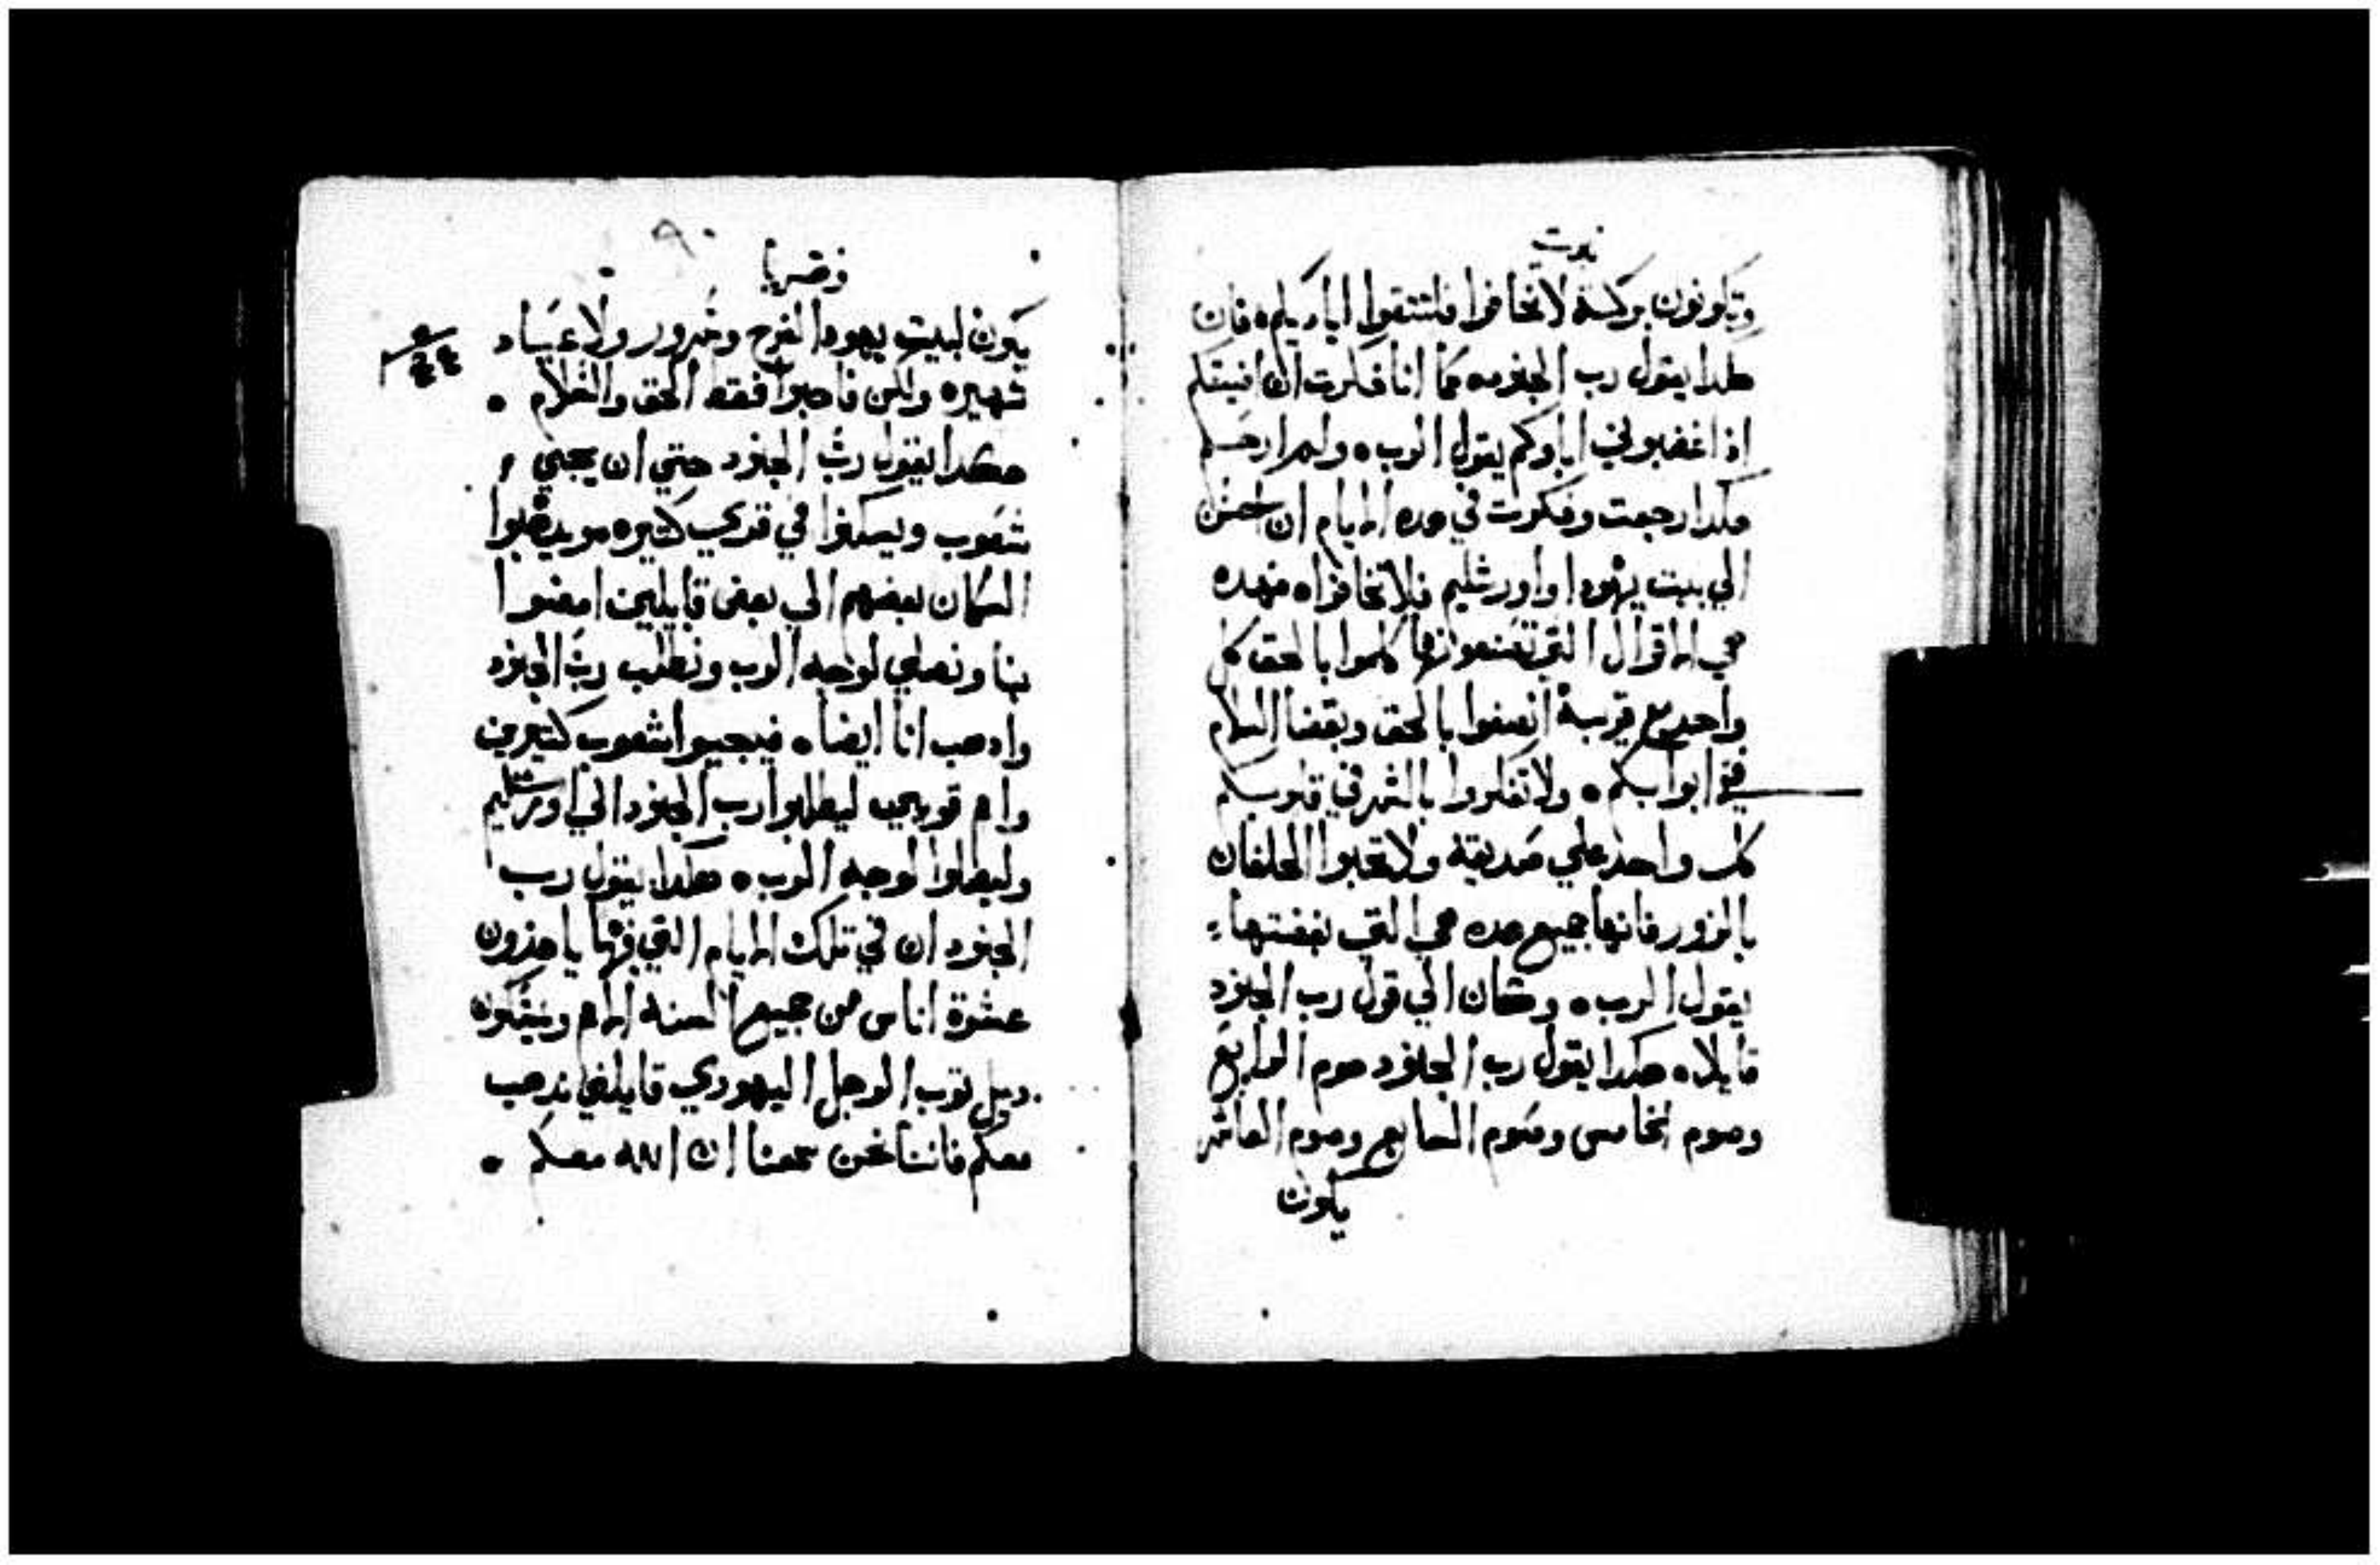 نبوة
وتكونون بركة لا تخافوا فلتتقوا اياديكم۰ فان
هكدا يقول رب الجنود۰ كما انا فكرت ان افنيكم
اذ اغضبوني اباوكم يقول الرب۰ ولم ارحم
هكدا رجعت وفكرت في هده الايام ان احسن
الي بيت يهودا واورشليم فلا تخافوا۰ فهده
هي الاقوال التي تصنعونها كلموا بالحق كل
واحد مع قريبة انصفوا بالحق وبقضا السلام
في ابوابكم۰ ولا تفكروا بالشر في قلوبكم
كل واحد علي صديقه ولا تحبوا الحلفان
بالزور فانها جميع هده هي التي بغضتها
يقول الرب۰ وكان الي قول رب الجنود
قايلا۰ هكدا يقول رب الجنود صوم الرابع
وصوم الخامس وصوم السابع وصوم العاشر
يكون
زخريا
يكون لبيت يهودا لفرح وسرور ولاعياد
شهيره ولكن فاحبوا فقط الحق والسلام ۰
هكدا يقول رب الجنود حتي ان يجي
شعوب ويسكنوا في قري كثيره ويدهبوا
السكان بعضهم الي بعض قايلين امضوا
بنا ونصلي لوجه الرب ونطلب رب الجنود
وادهب انا ايضا۰ فيجيوا شعوب كثيرين
وامم قويين ليطلبوا رب الجنود الي اورشليم
وليصلوا لوجه الرب۰ هكدا يقول رب
الجنود ان في تلك الايام التي فيها ياخذون
عشرة اناس من جميع السنة الامم ويمسكون
ديل توب الرجل اليهودي قايلين ندهب
معكم فاننا نحن سمعنا ان الله معكم ۰